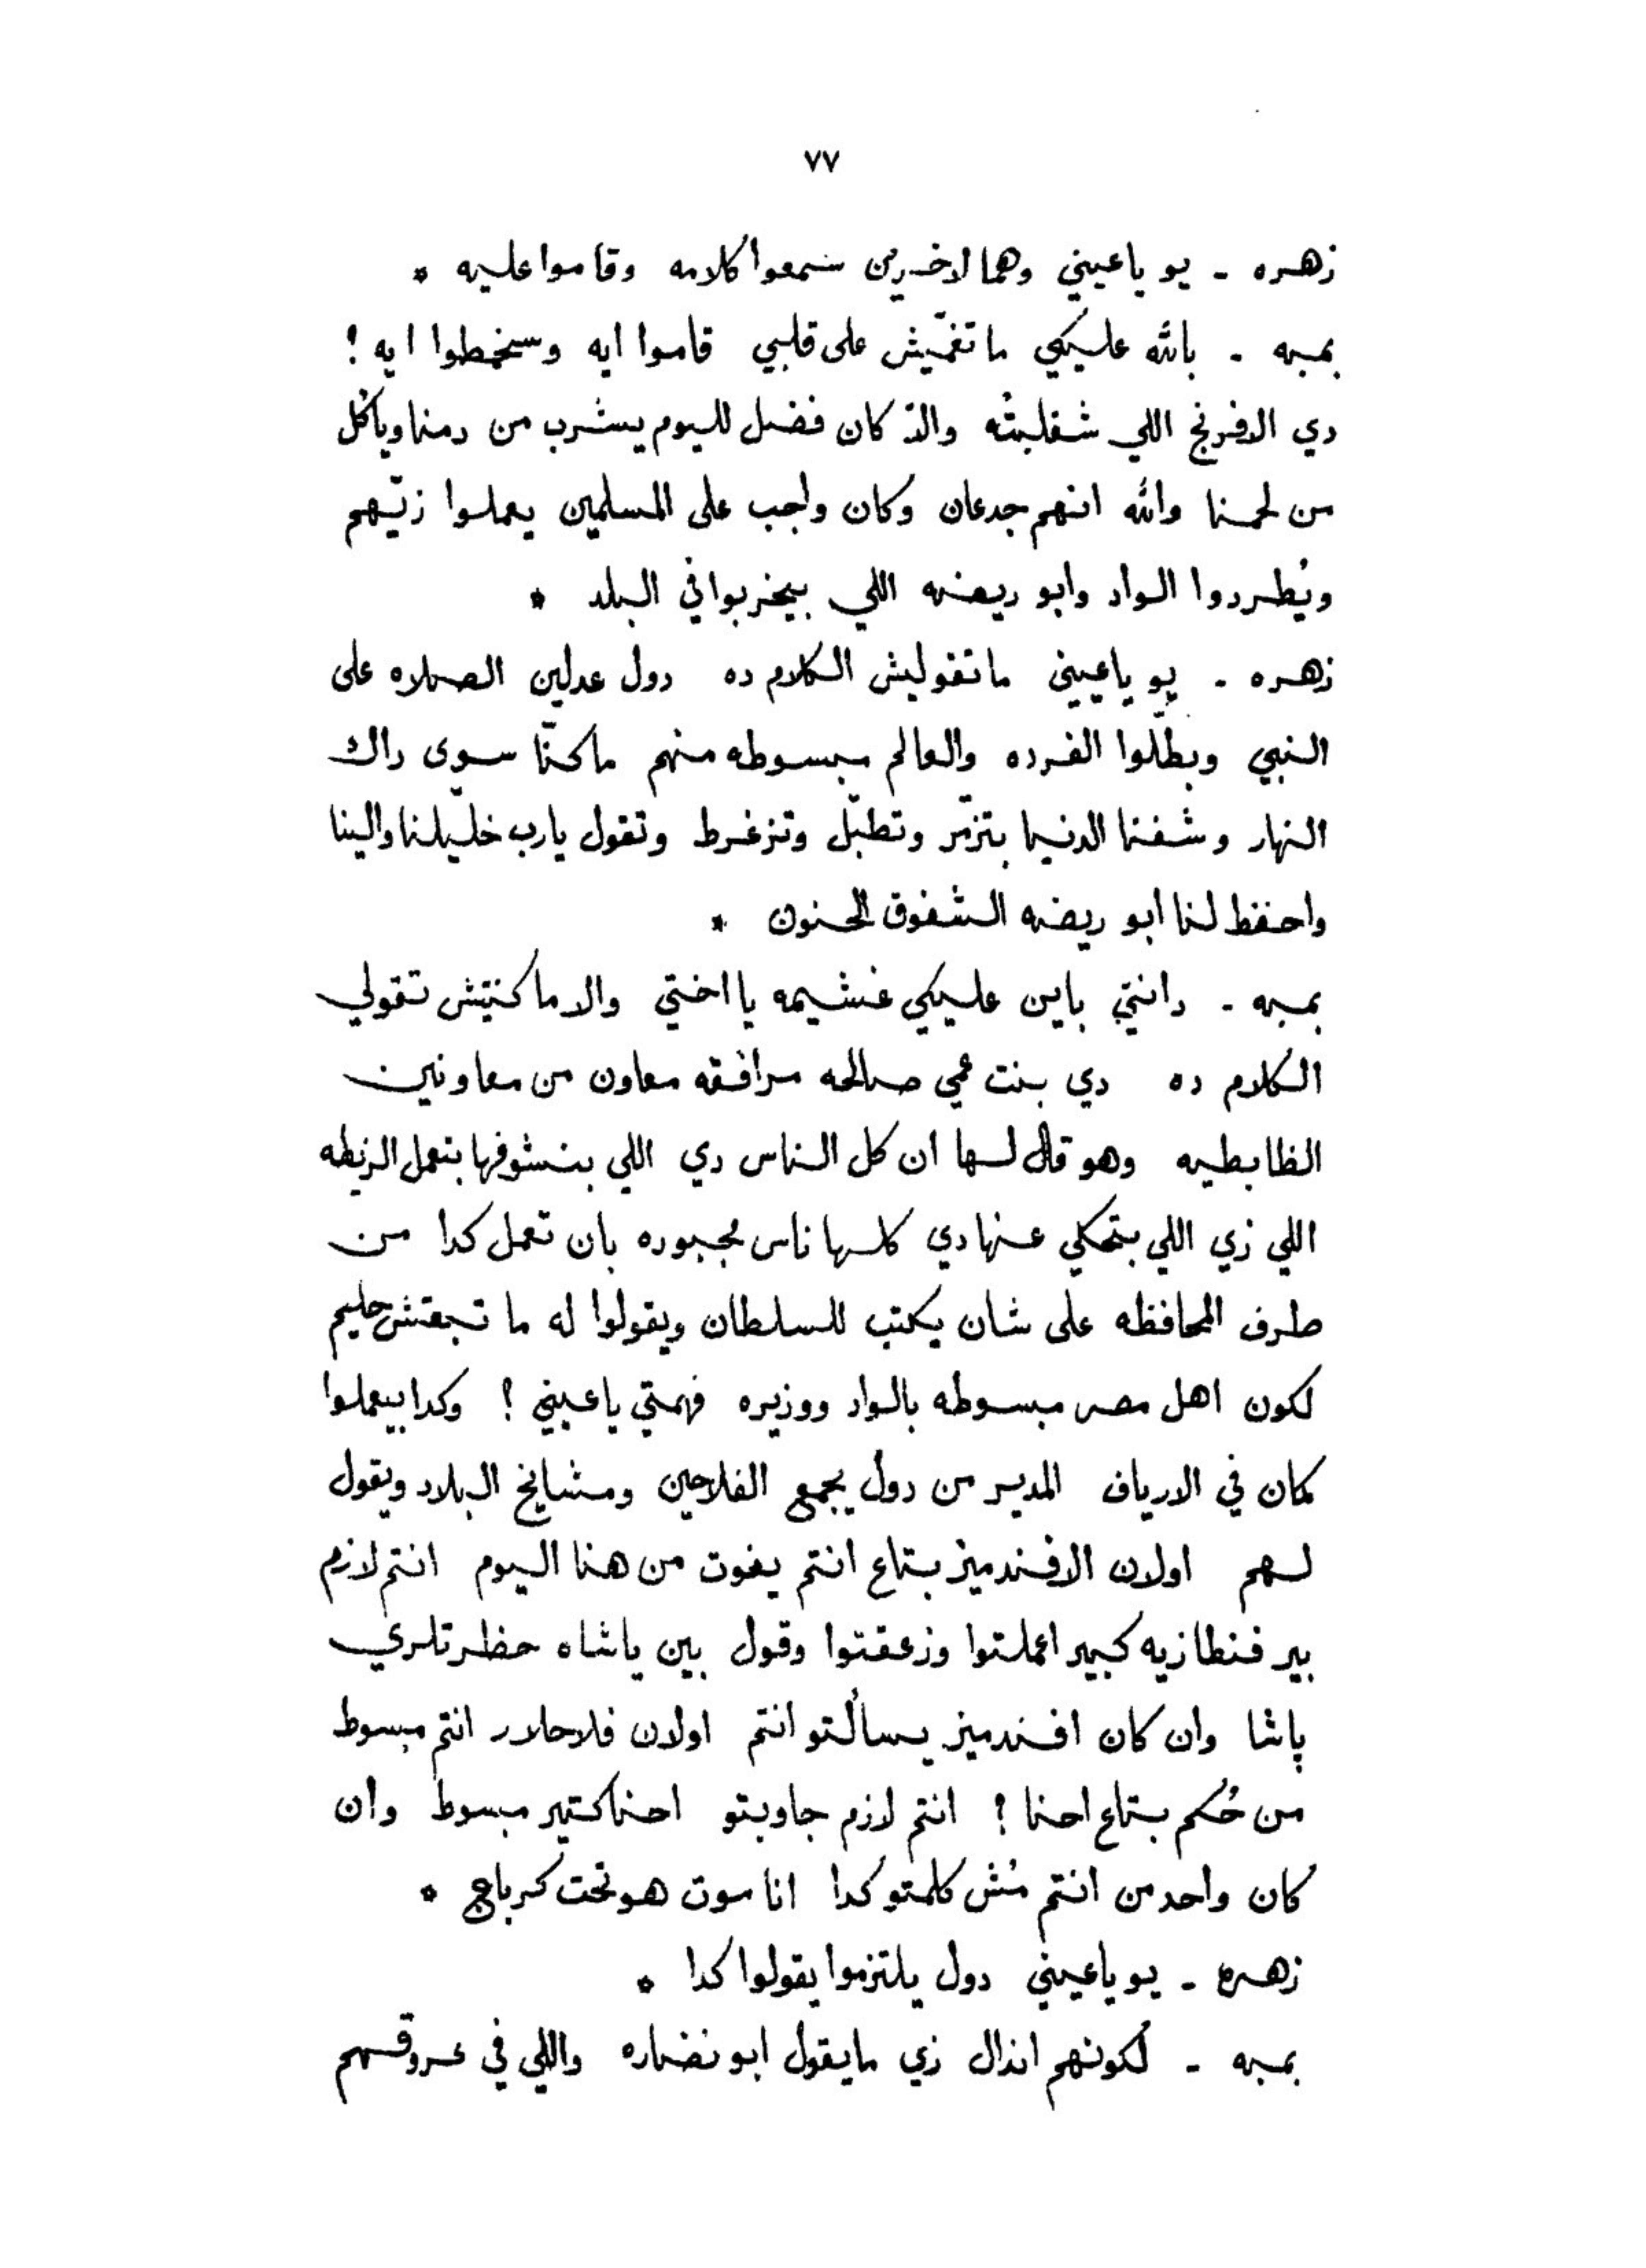 ٧٧
زهره - يو ياعيني وهما الاخرين سمعوا كلامه وقاموا عليه *
بمبه - بالله عليكي ما تغمّيش على قلبي قاموا ايه وسخطوا ايه !
دي الافرنج اللي شقلبتُه والا كان فضل لليوم يشرب من دمنا وياكل
من لحمنا والله انهم جدعان وكان واجب على المسلمين يعملوا زيّهم
ويُطردوا الواد وابو ريضه اللي بيخربوا في البلد *
زهره - يو ياعيني ماتقوليش الكلام ده دول عدلين الصلاه على
النبي وبطّلوا الفرده والعالم مبسوطه منهم ماكنّا سوى داك
النهار وشفنا الدنيا بتزمّر وتطبّل وتزغرط وتقول يارب خلّيلنا والينا
واحفظ لنا ابو ريضه الشفوق الحنون *
بمبه - دانتي باين عليكي غشيمه يا اختي والا ما كنتيش تقولي
الكلام ده دي بنت عمي صالحه مرافقه معاون من معاونين
الظابطيه وهو قال لها ان كل الناس دي اللي بنشوفها بتعمل الزيطه
اللي زي اللي بتحكي عنها دي كلها ناس مجبوره بان تعمل كدا من
طرف المحافظه على شان يكتب للسلطان ويقولوا له ما تبعتش حليم
لكون اهل مصر مبسوطه بالواد ووزيره فهمتي ياعيني ؟ وكدا بيعملوا
كمان في الارياف المدير من دول يجمع الفلاحين ومشايخ البلاد ويقول
لهم اولان الافندميز بتاع انتم يفوت من هنا اليوم انتم لازم
بير فنطازيه كبير اعملتوا وزعقتوا وقول بين ياشاه حظرتلري
پاشا وان كان افندميز يسألتو انتم اولان فلاحلار انتم مبسوط
من حُكم بتاع احنا ؟ انتم لازم جاوبتو احنا كتير مبسوط وان
كان واحد من انتم مُش كلمتو كدا انا موت هو تحت كرباج *
زهره - يو ياعيني دول يلتزموا يقولوا كدا *
بمبه - لكونهم انذال زي مايقول ابو نضاره واللي في عروقهم